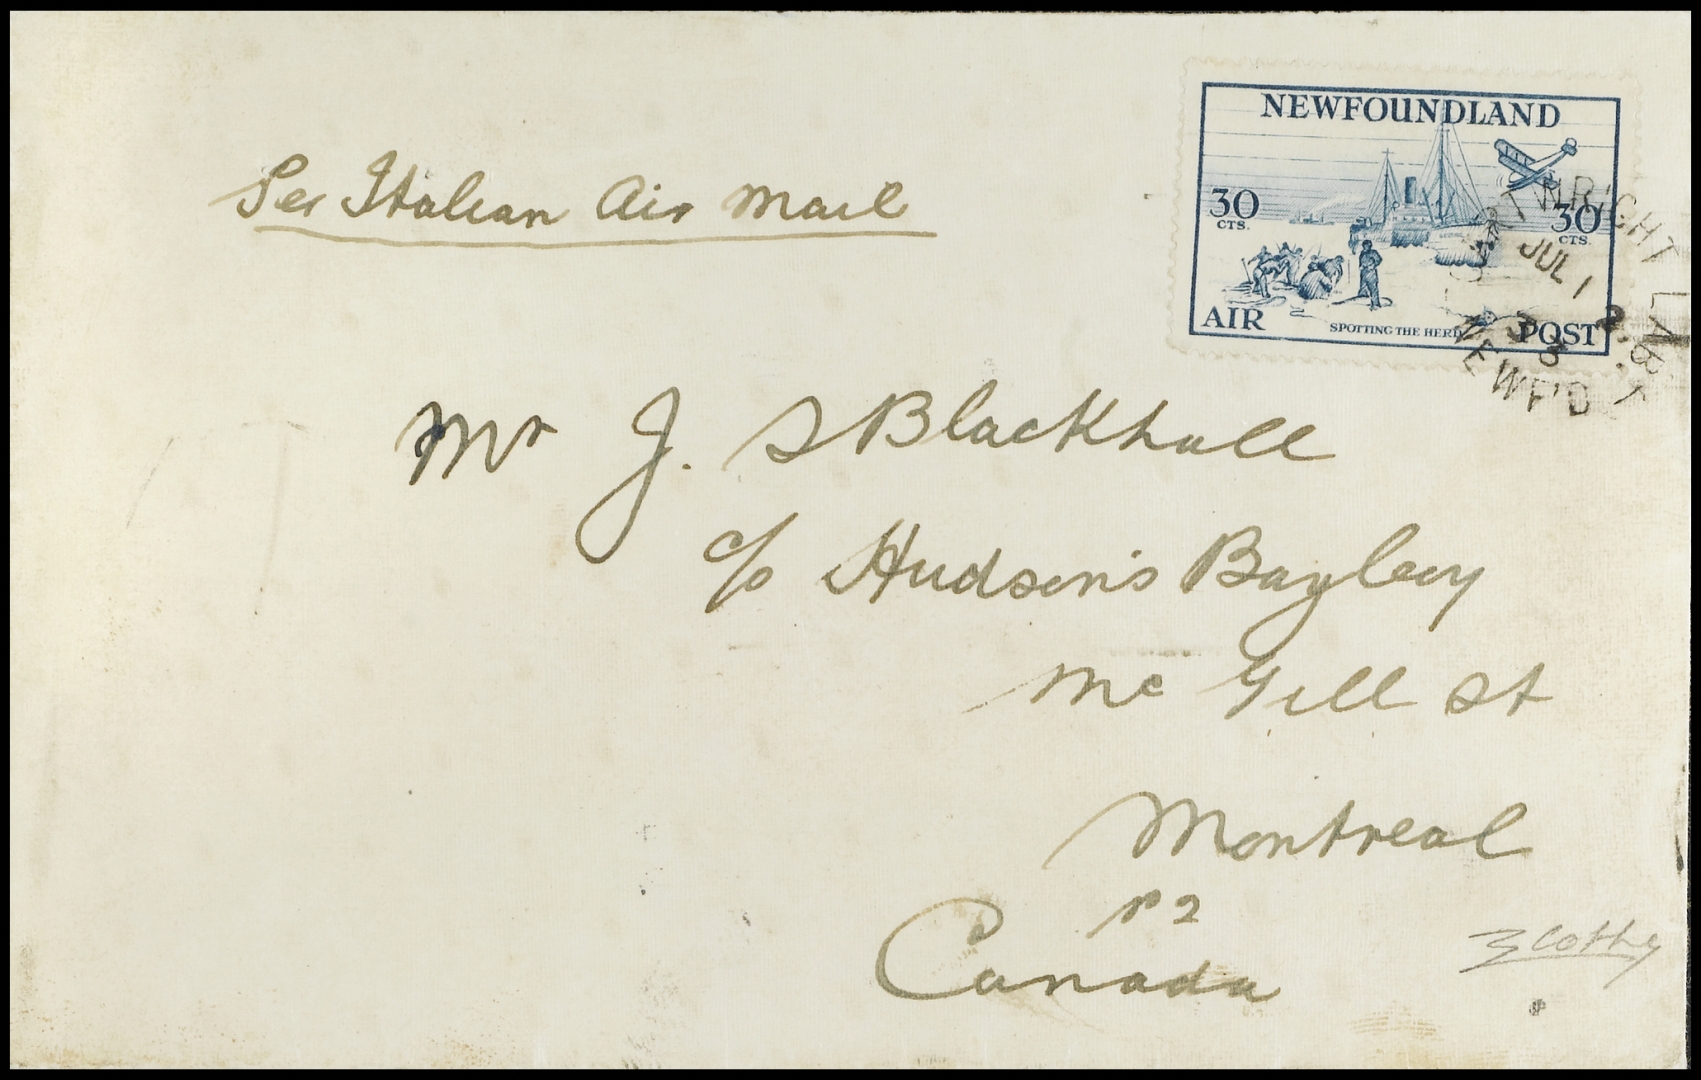 NEWFOUNDLAND
30 CTS. 30 CTS.
AIR SPOTTING THE HERD POST
CARTWRIGHT LABR
JUL 1
33
NEWF'D
Per Italian Air Mail
Mr J. S Blackhall
c/o Hudson's Bay
Mc Gill St
Montreal
P2
Canada